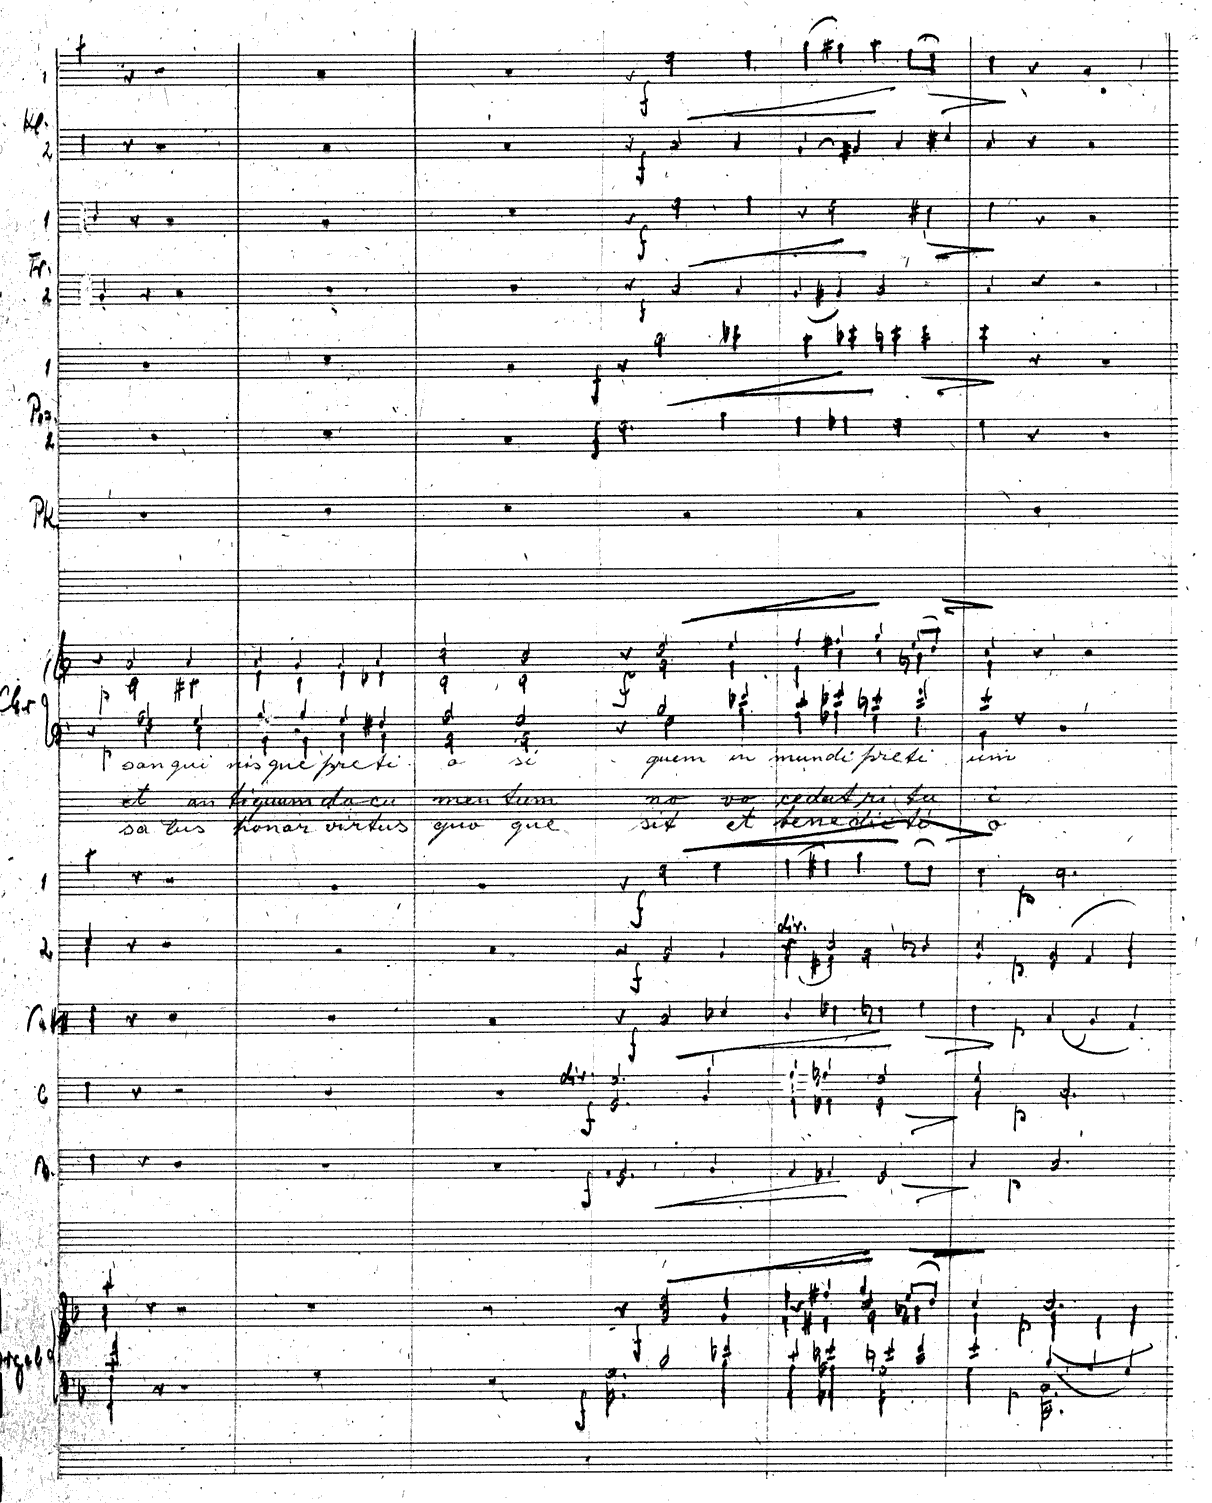 1
Kl.
2
1
Tr.
2
1
Pos.
2
f
f
f
f
f
f
Pk
Chor
p
f
p
sanqui nisque preti o si quem in mundi preti um
et an tiquum docu men tum no vo cedat ri tu i
sa lus honor virtus quo que sit et benedicti o
1
f
p
2
div.
f
p
f
p
C
div.
f
p
B.
f
p
Orgel
f
p
f
p